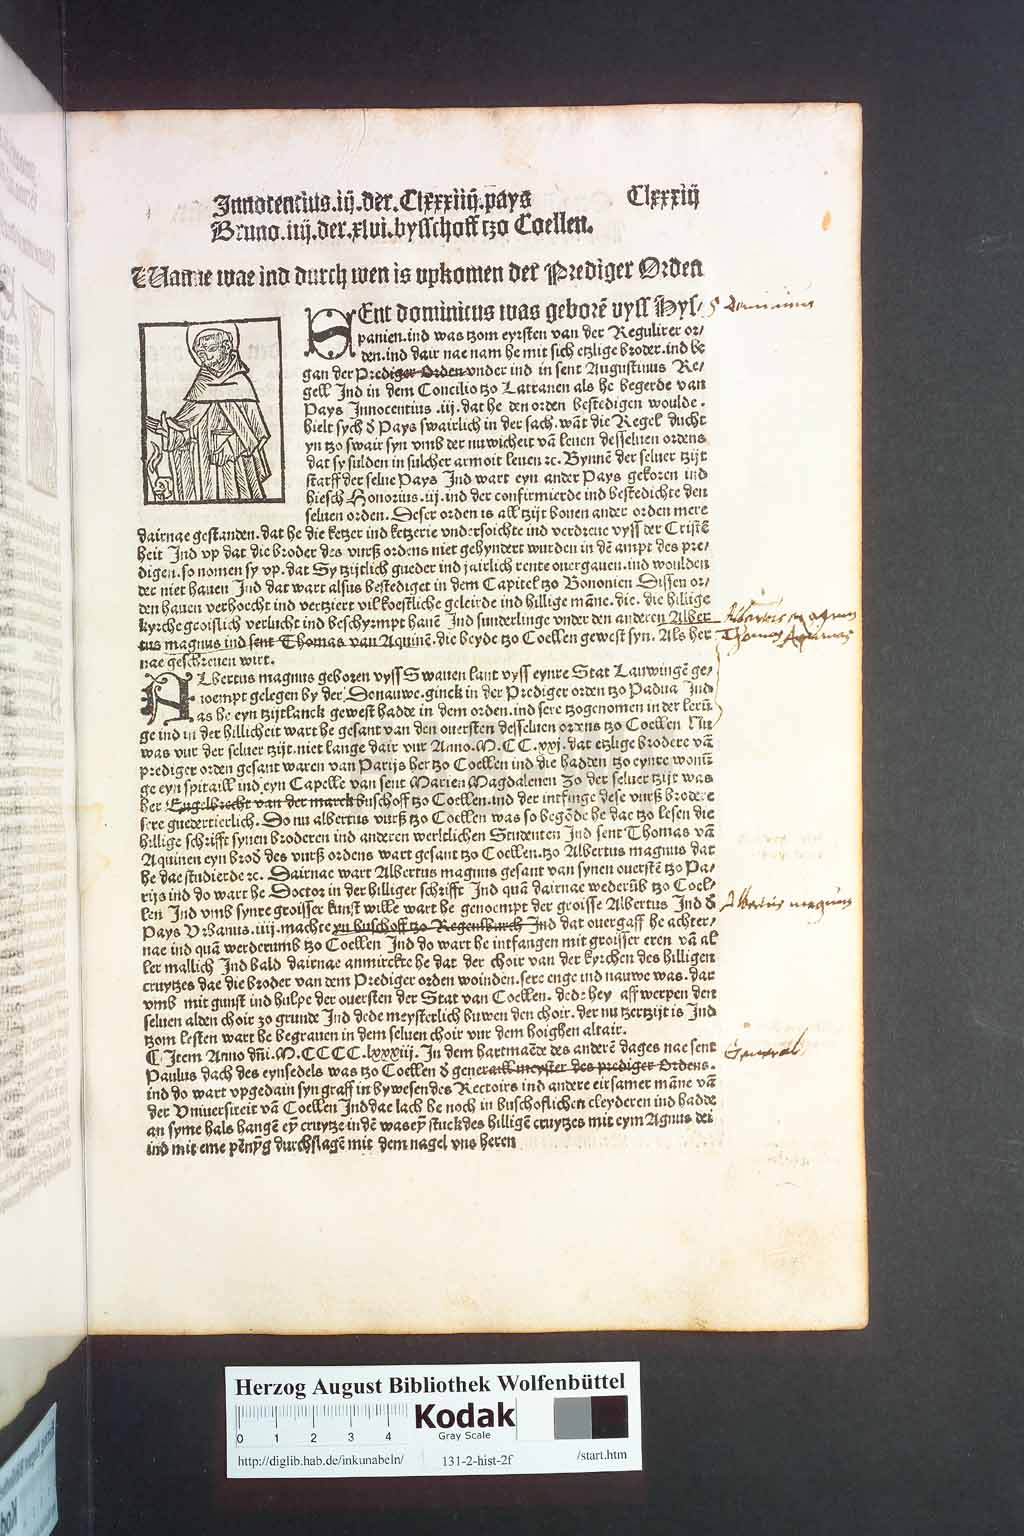 Innocentius.iij.der.Clxxxiiij.pays Clxxxiij
Bruno.iiij.der.xlvi.bysschoff tzo Coellen.
Wanne wae ind durch wen is upkomen der Prediger Orden
SEnt dominicus was geborē vyss Hys/ S Dominicus
panien.ind was tzom eyrsten van der Regulirer or/
den.ind dair nae nam he mit sich etzlige broder.ind be
gan der Prediger Orden vnder ind in sent Augustinus Re/
gell Ind in dem Concilio tzo Latranen als he begerde van
Pays Innocentius .iij. dat he den orden bestedigen woulde .
hielt sych d Pays swairlich in der sach. wāt die Regel ducht
yn tzo swair syn vmb der nuwicheit vā leuen desseluen ordens
dat sy sulden in sulcher armoit leuen ꝛc. Bynnē der seluer tzijt
starff der selue Pays Ind wart eyn ander Pays gekoren ind
hiesch Honorius .iij. ind der confirmierde ind bestedichte den
seluen orden. Deser orden is all tzijt bouen ander orden mere
dairnae gestanden. dat he die ketzer ind ketzerie vndersoichte ind verdreue vyss der Cristē
heit Ind vp dat die broder des vurß ordens niet gehyndert wurden in dē ampt des pre/
digen. so nomen sy vp. dat Sy tzijtlich gueder ind jairlich rente ouergauen. ind woulden
der niet hauen Ind dat wart alsus bestediget in dem Capitel tzo Bononien Dissen or/
den hauen verhoecht ind vertziert vil koestliche geleirde ind hillige māne. die. die hillige
kyrche groislich verlucht ind beschyrmpt hauē Ind sunderlinge vnder den anderen Alber Albertus magnus
tus magnus ind sent Thomas van Aquinē. die beyde tzo Coellen gewest syn. Als her Thomas Aquinas
nae geschreuen wirt.
ALbertus magnus geboren vyss Swauen lant vyss eynre Stat Lauwingē ge/
noempt gelegen by der Donauwe. ginck in der Prediger orden tzo Padua Ind
as he eyn tzijtlanck gewest hadde in dem orden. ind sere tzogenomen in der lerū
ge ind in der hillicheit wart he gesant van den ouersten desseluen ordens tzo Coellen Nu
was vur der seluer tzijt. niet lange dair vur Anno. M. CC. xxj. dat etzlige brodere vā
prediger orden gesant waren van Parijs her tzo Coellen ind die hadden tzo eynre wonū
ge eyn spitaill ind eyn Capelle van sent Marien Magdalenen Zo der seluer tzijt was
her Engelbrecht van der marck buschoff tzo Coellen. ind der intfinge dese vurß brodere
sere guedertierlich. Do nu albertus vurß tzo Coellen was so begōde he dae tzo lesen die
hillige schrifft synen broderen ind anderen werltlichen Studenten Ind sent Thomas vā
Aquinen eyn brod des vurß ordens wart gesant tzo Coellen. tzo Albertus magnus dat
he dae studierde ꝛc. Dairnae wart Albertus magnus gesant van synen ouerstē tzo Pa/
rijs ind do wart he Doctor in der hilliger schrifft Ind quā dairnae wederūb tzo Coel/
len Ind vmb synre groisser kunst wille wart he genoempt der groisse Albertus Ind d Albertus magnus
Pays Vrbanus .iiij. machte yn buschoff tzo Regenßburch Ind dat ouergaff he achter/
nae ind quā werderumb tzo Coellen Ind do wart he intfangen mit groisser eren vā al
ler mallich Ind bald dairnae anmirckte he dat der choir van der kyrchen des hilligen
cruytzes dae die broder van dem Prediger orden woinden. sere enge ind nauwe was. dar
vmb mit gunst ind hulpe der ouersten der Stat van Coellen. dede hey aff werpen den
seluen alden choir zo grunde Ind dede meysterlich buwen den choir. der nu tzertzijt is Ind
tzom lesten wart he begrauen in dem seluen choir vur dem hoighen altair.
⁋ Item Anno dn̄i. M. CCCC. lxxxiij. In dem hartmaēde des anderē dages nae sent General
Paulus dach des eynsedels was tzo Coellen d generaill meyster des prediger Ordens.
ind do wart vpgedain syn graff in bywesen des Rectoirs ind andere eirsamer māne vā
der Vniuersiteit vā Coellen Ind dae lach he noch in buschoflichen cleyderen ind hadde
an syme hals hangē eȳ cruytze in dē was eȳ stuck des hilligē cruytzes mit eym Agnus dei
ind mit eme pēnȳg durchslagē mit dem nagel vns heren
Herzog August Bibliothek Wolfenbüttel
0 1 2 3 4
Kodak
Gray Scale
http://diglib.hab.de/inkunabeln/ 131-2-hist-2f /start.htm